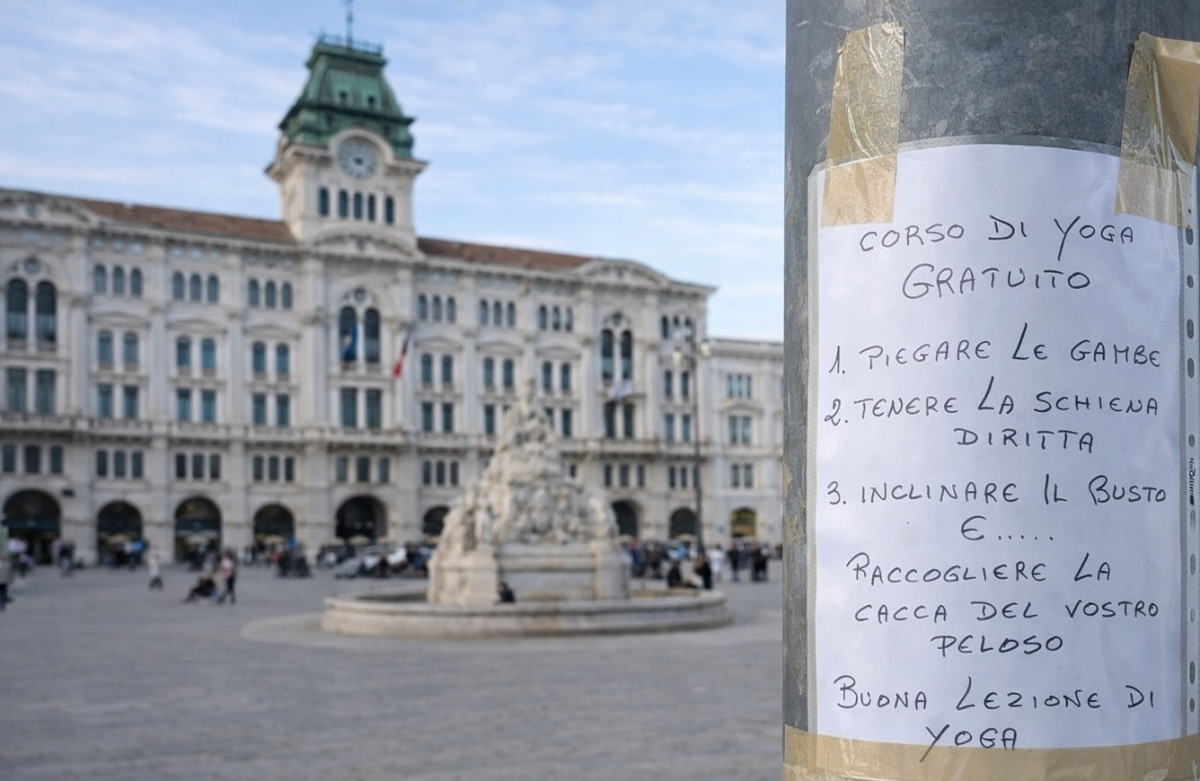 CORSO DI YOGA
GRATUITO
1. PIEGARE LE GAMBE
2. TENERE LA SCHIENA
DIRITTA
3. INCLINARE IL BUSTO
E.....
RACCOGLIERE LA
CACCA DEL VOSTRO
PELOSO
BUONA LEZIONE DI
YOGA